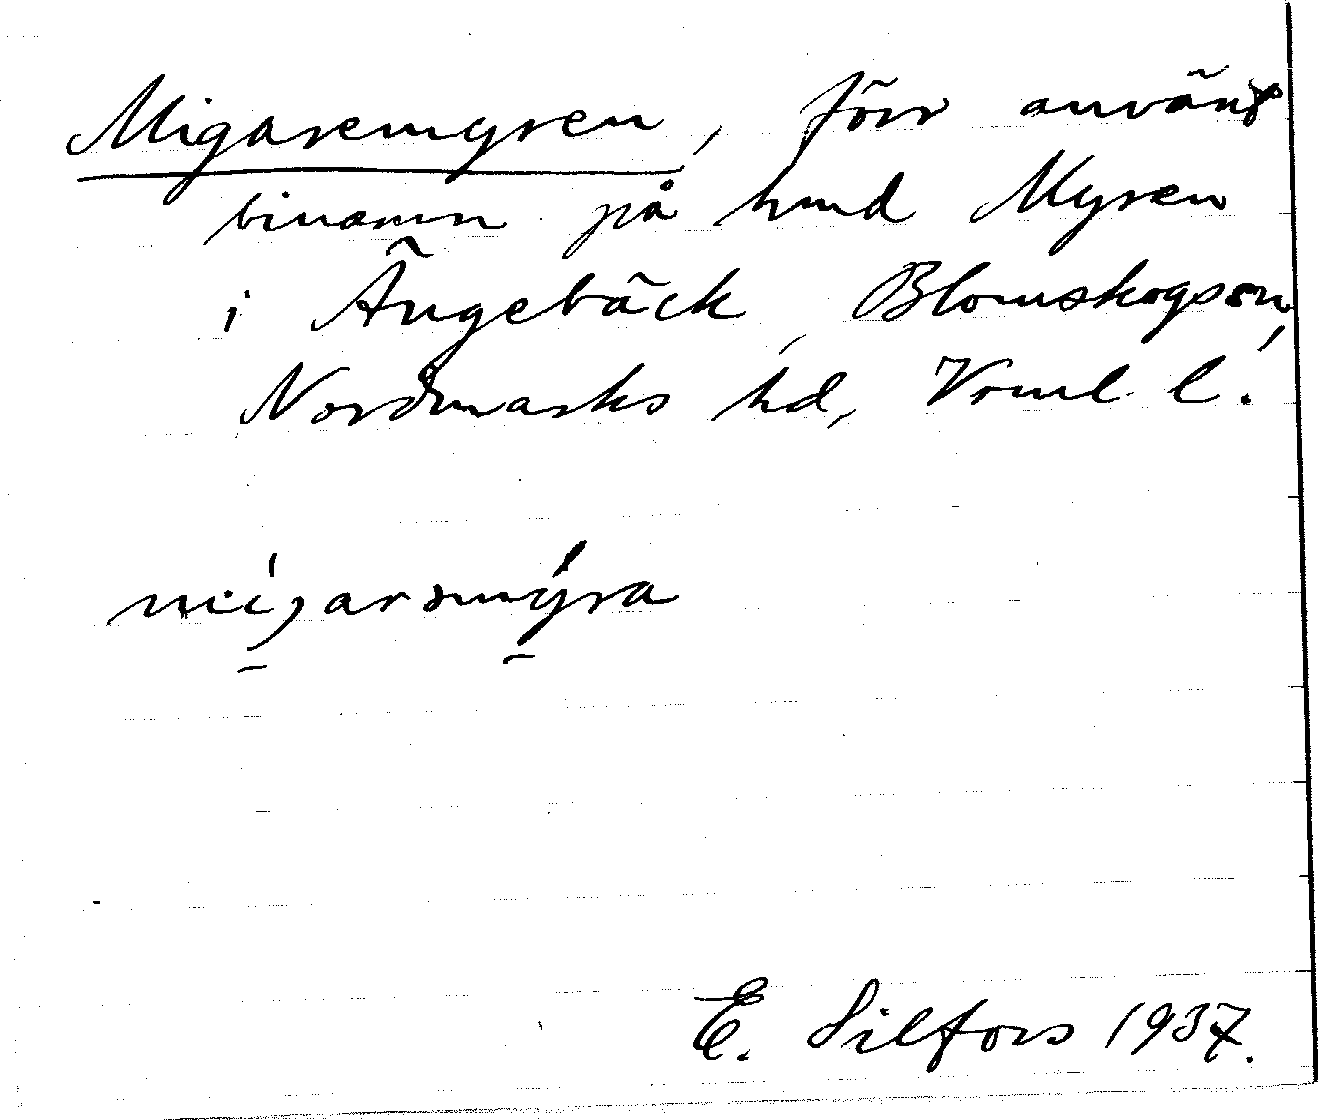 Migaremyren, förr använt
binamn på hmd Myren
i Ängebäck, Blomskogs sn,
Nordmarks hd, Vrml. l.
migarsmýra
E. Silfors 1937.